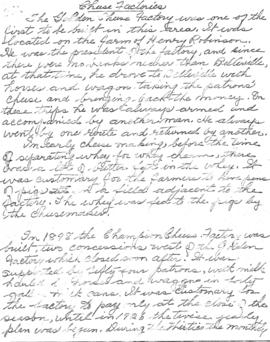 Cheese Factories
The Golden Cheese Factory was one of the
first to be built in this area. It was
located on the farm of Henry Robinson.
He was the president of the factory, and since
there were no banks nearer than Belleville,
at that time, he drove to Belleville with
horses and wagon taking the patrons'
cheese and bringing back the money. In
these trips he was always armed and
accompanied by another man. He always
went by one route and returned by another.
In early cheese making before the time
of separating whey for whey cream, there
would be butter fat on the whey. It
was customary for the farmers to have pens
of pigs at a field adjacent to the
factory. The whey was fed to the pigs by
the Cheesemaker.
In 1898 the Champion Cheese Factory was
built two concessions west of the Golden
Factory which closed soon after. It was
supported by fifty four patrons, with milk
hauled by horses and wagons in forty
gallon milk cans. It was customary for
the factory to pay only at the close of the
season, until in 1926 the twice yearly
plan was begun. During the thirties the monthly